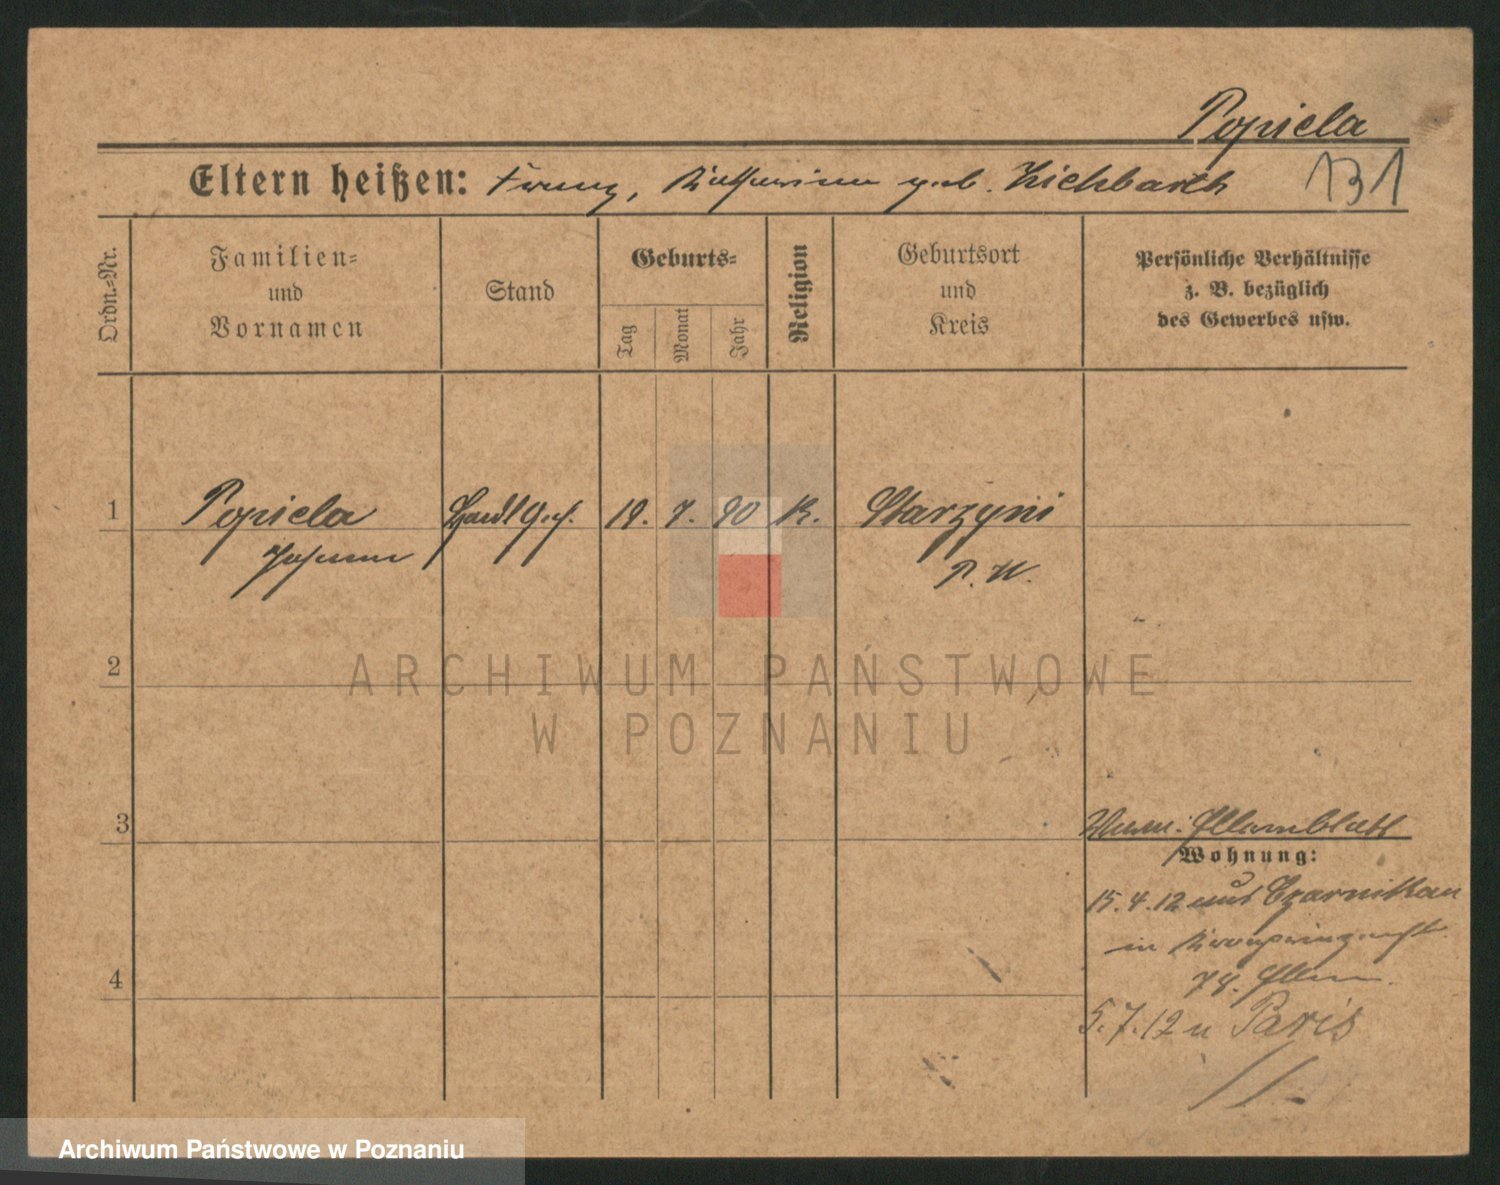 Popiela
Eltern heißen: Franz, Katharina geb. Kichbarth 131
Ordn.-Nr.
Familien-
und
Vornamen
Stand
Geburts-
Tag
Monat
Jahr
Religion
Geburtsort
und
Kreis
Persönliche Verhältnisse
z. B. bezüglich
des Gewerbes usw.
1 Popiela Handl Geh. 19. 7. 90 K. Starzyni
Johann P. W.
2
ARCHIWUM PAŃSTWOWE
W POZNANIU
3
Elternblatt
Wohnung:
15.4.12 aus Czarnikau
in Kronprinzenstr.
4
74. Eltern.
5.7.12 n Paris
Archiwum Państwowe w Poznaniu